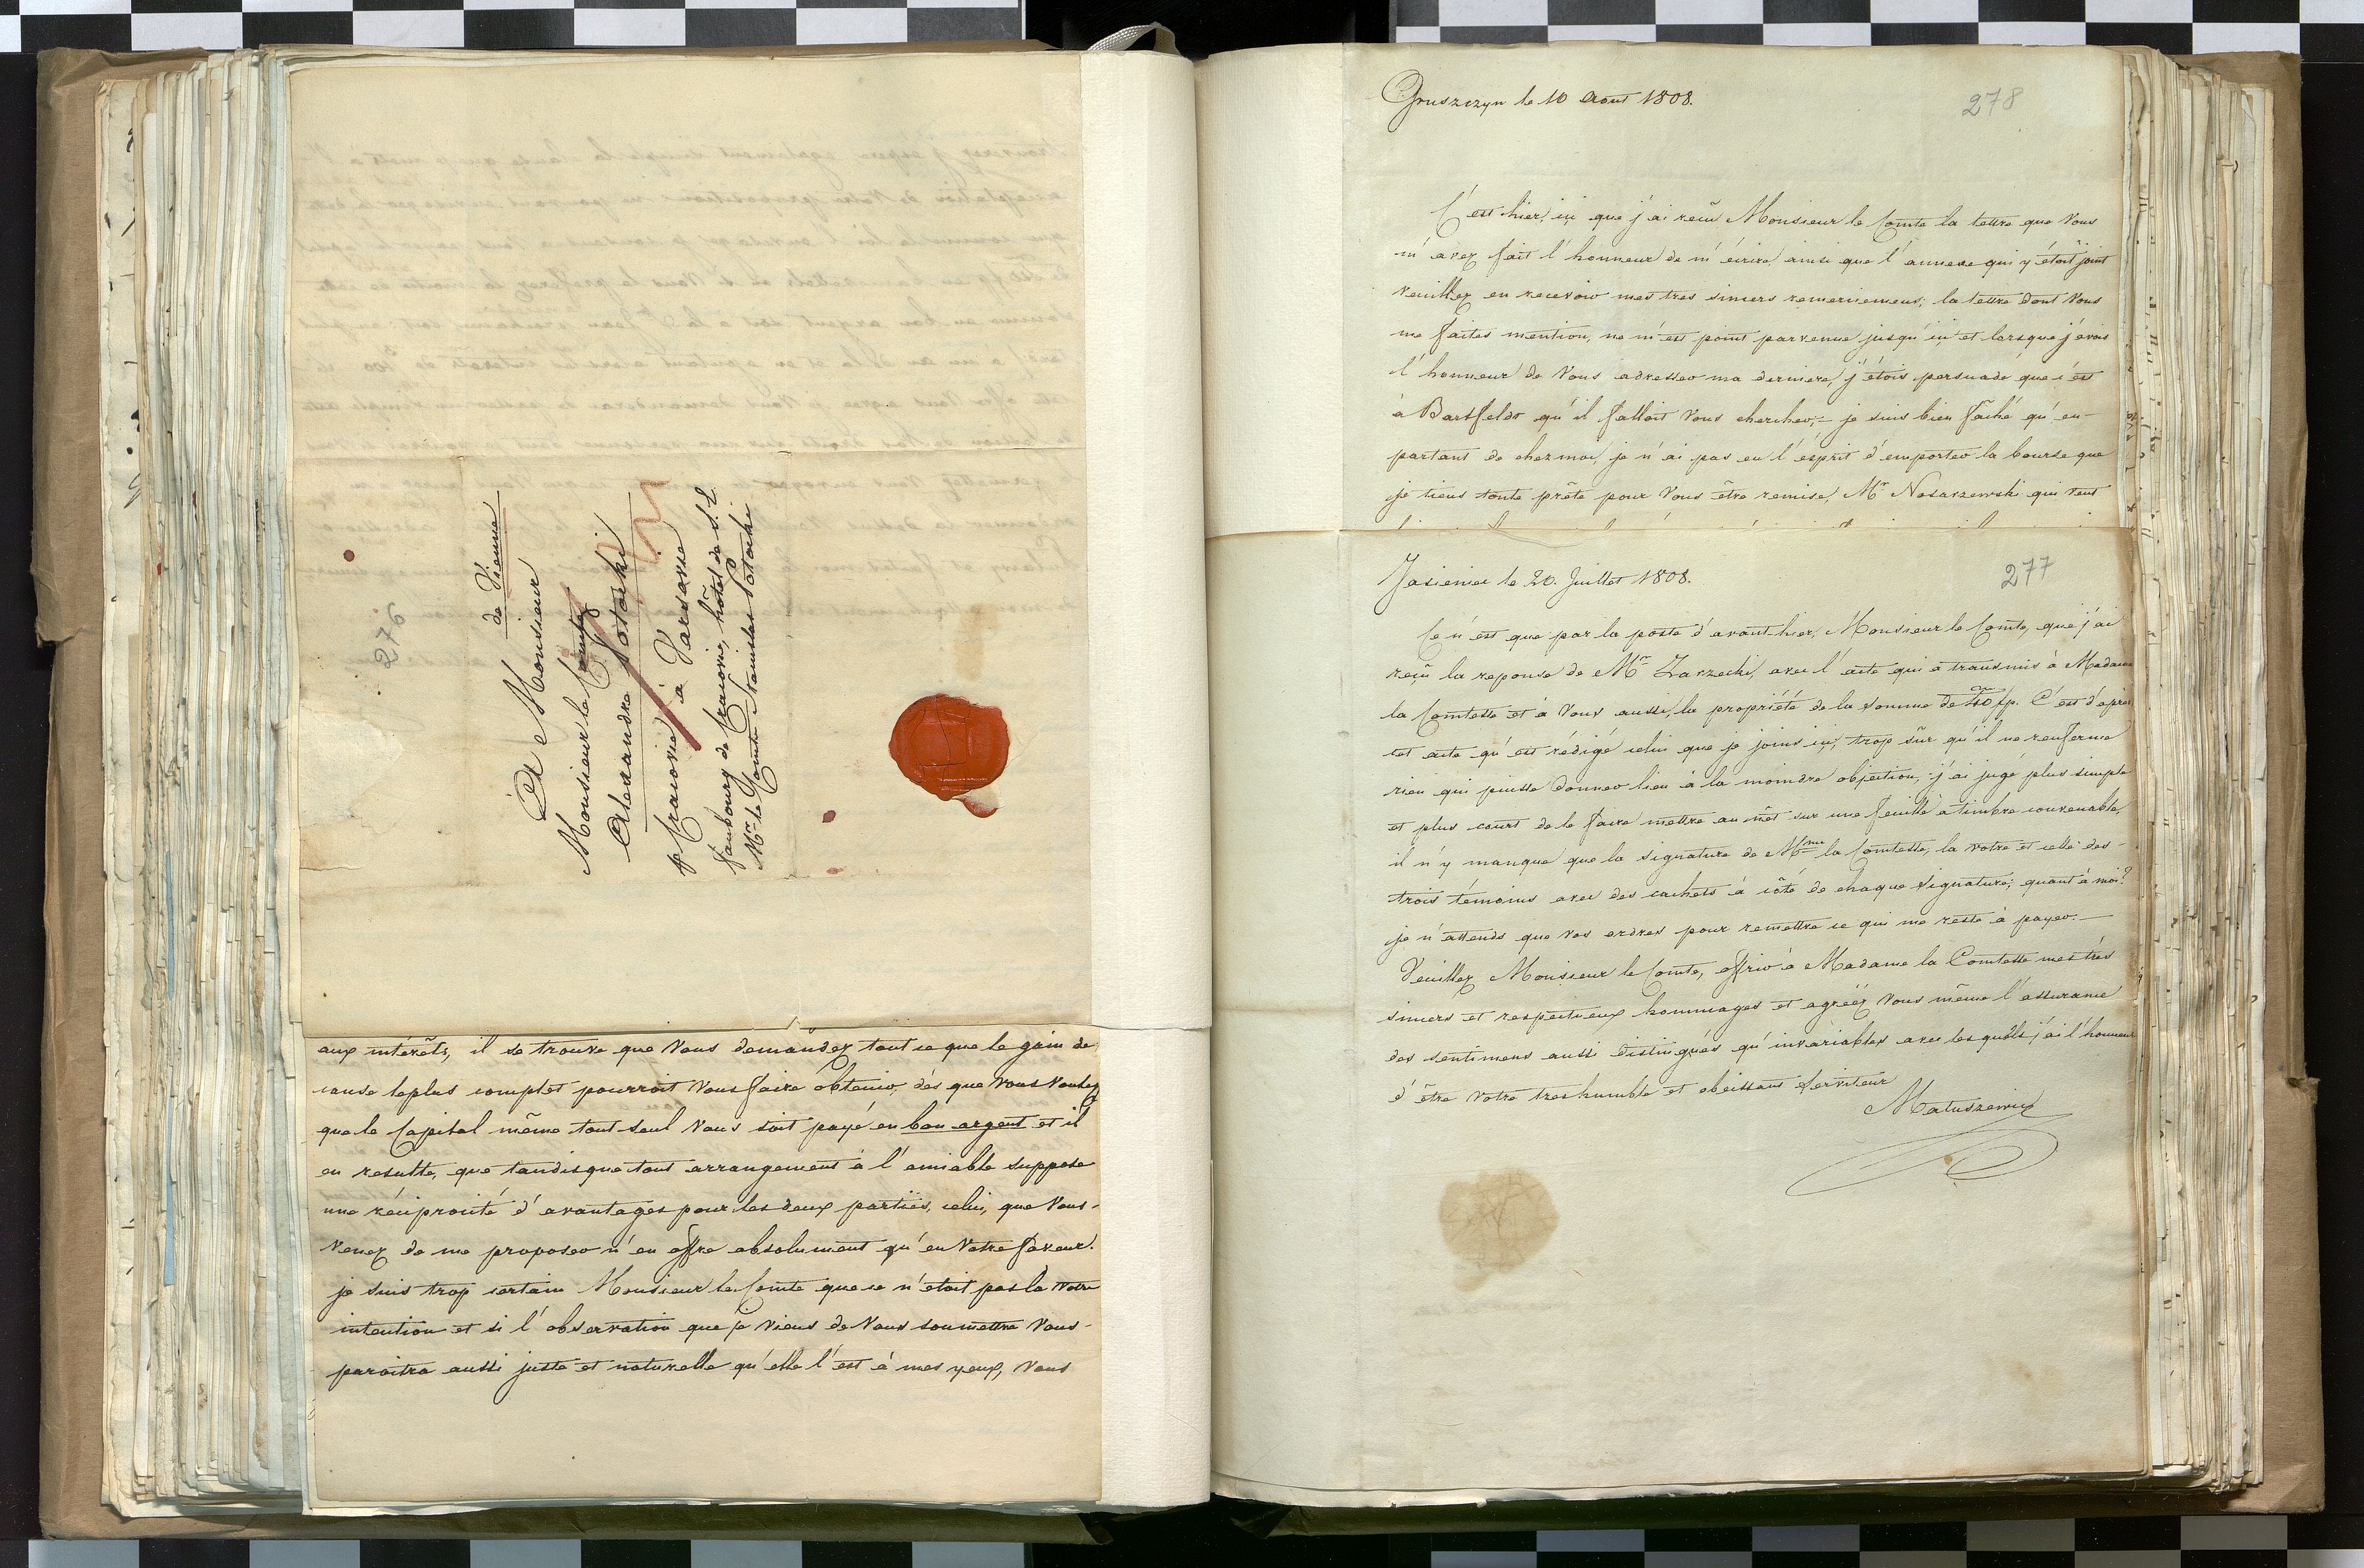 276
de Vienne
A Monsieur
Monsieur le Comte
Alexandre Potocki
p Cracovie à Varsovie
fauxbourg de Cracovie, hôtel de S. E.
Mr le Comte Stanislas Potocki
aux intérêts, il se trouve que Vous demandez tout ce que le gain de
cause le plus complet pourroit Vous faire obtenir, dés que Vous voulez
que le Capital même tout seul Vous soit payé en bon argent et il
en resulte, que tandisque tout arrangement à l'amiable suppose
une réciprocité d'avantages pour les deux parties, celui, que Vous
venez de me proposer n'en offre absolument qu'en Votre faveur.
je suis trop certain Monsieur le Comte que ce n'etoit pas la votre
intention et si l'observation que je viens de Vous soumettre Vous
paroitra aussi juste et naturelle qu'elle l'est à mes yeux, Vous
Gruszczyn le 10 Aout 1808.
278
C'est hier, ici que j'ai reçu Monsieur le Comte la lettre que Vous
m'avez fait l'honneur de m'écrire, ainsi que l'annexe qui y étoit joint
veuillez en recevoir mes tres sincers remerciemens; la lettre dont Vous
me faites mention, ne m'est point parvenue jusqu'ici et lorsque j'avois
l'honneur de Vous adresser ma derniere, j'étois persuadé que c'est
à Bartfeldt qu'il falloit Vous chercher; je suis bien faché qu'en
partant de chez moi, je n'ai pas eu l'ésprit d'emporter la bourse que
je tiens toute prête pour Vous être remise, Mr Nosarzewski qui veut
Jasieniec le 20. Juillet 1808.
277
Ce n'est que par la poste d'avant hier, Monsieur le Comte, que j'ai
reçu la reponse de Mr Zarzecki, avec l'acte qui a transmis à Madame
la Comtesse et à Vous aussi, la propriété de la somme de fp. C'est d'après
cet acte qu'est rédigé celui que je joins ici, trop sûr qu'il ne renferme
rien qui puisse donner lieu à la moindre objection, j'ai jugé plus simple
et plus court de le faire mettre au nêt sur une feuille à timbre convenable,
il n'y manque que la signature de Mme la Comtesse, la votre et celle des
trois témoins avec des cachets à côté de chaque signature; quant à moi?
je n'attends que vos ordres pour remettre ce qui me reste à payer.
Veuillez Monsieur le Comte, offrir à Madame la Comtesse mes trés
sincers et respectueux hommages et agréez Vous même l'assurance
des sentimens aussi distingués qu'invariables avec lesquels j'ai l'honneur
d'être Votre tres humble et obeissant serviteur
Matuszewicz